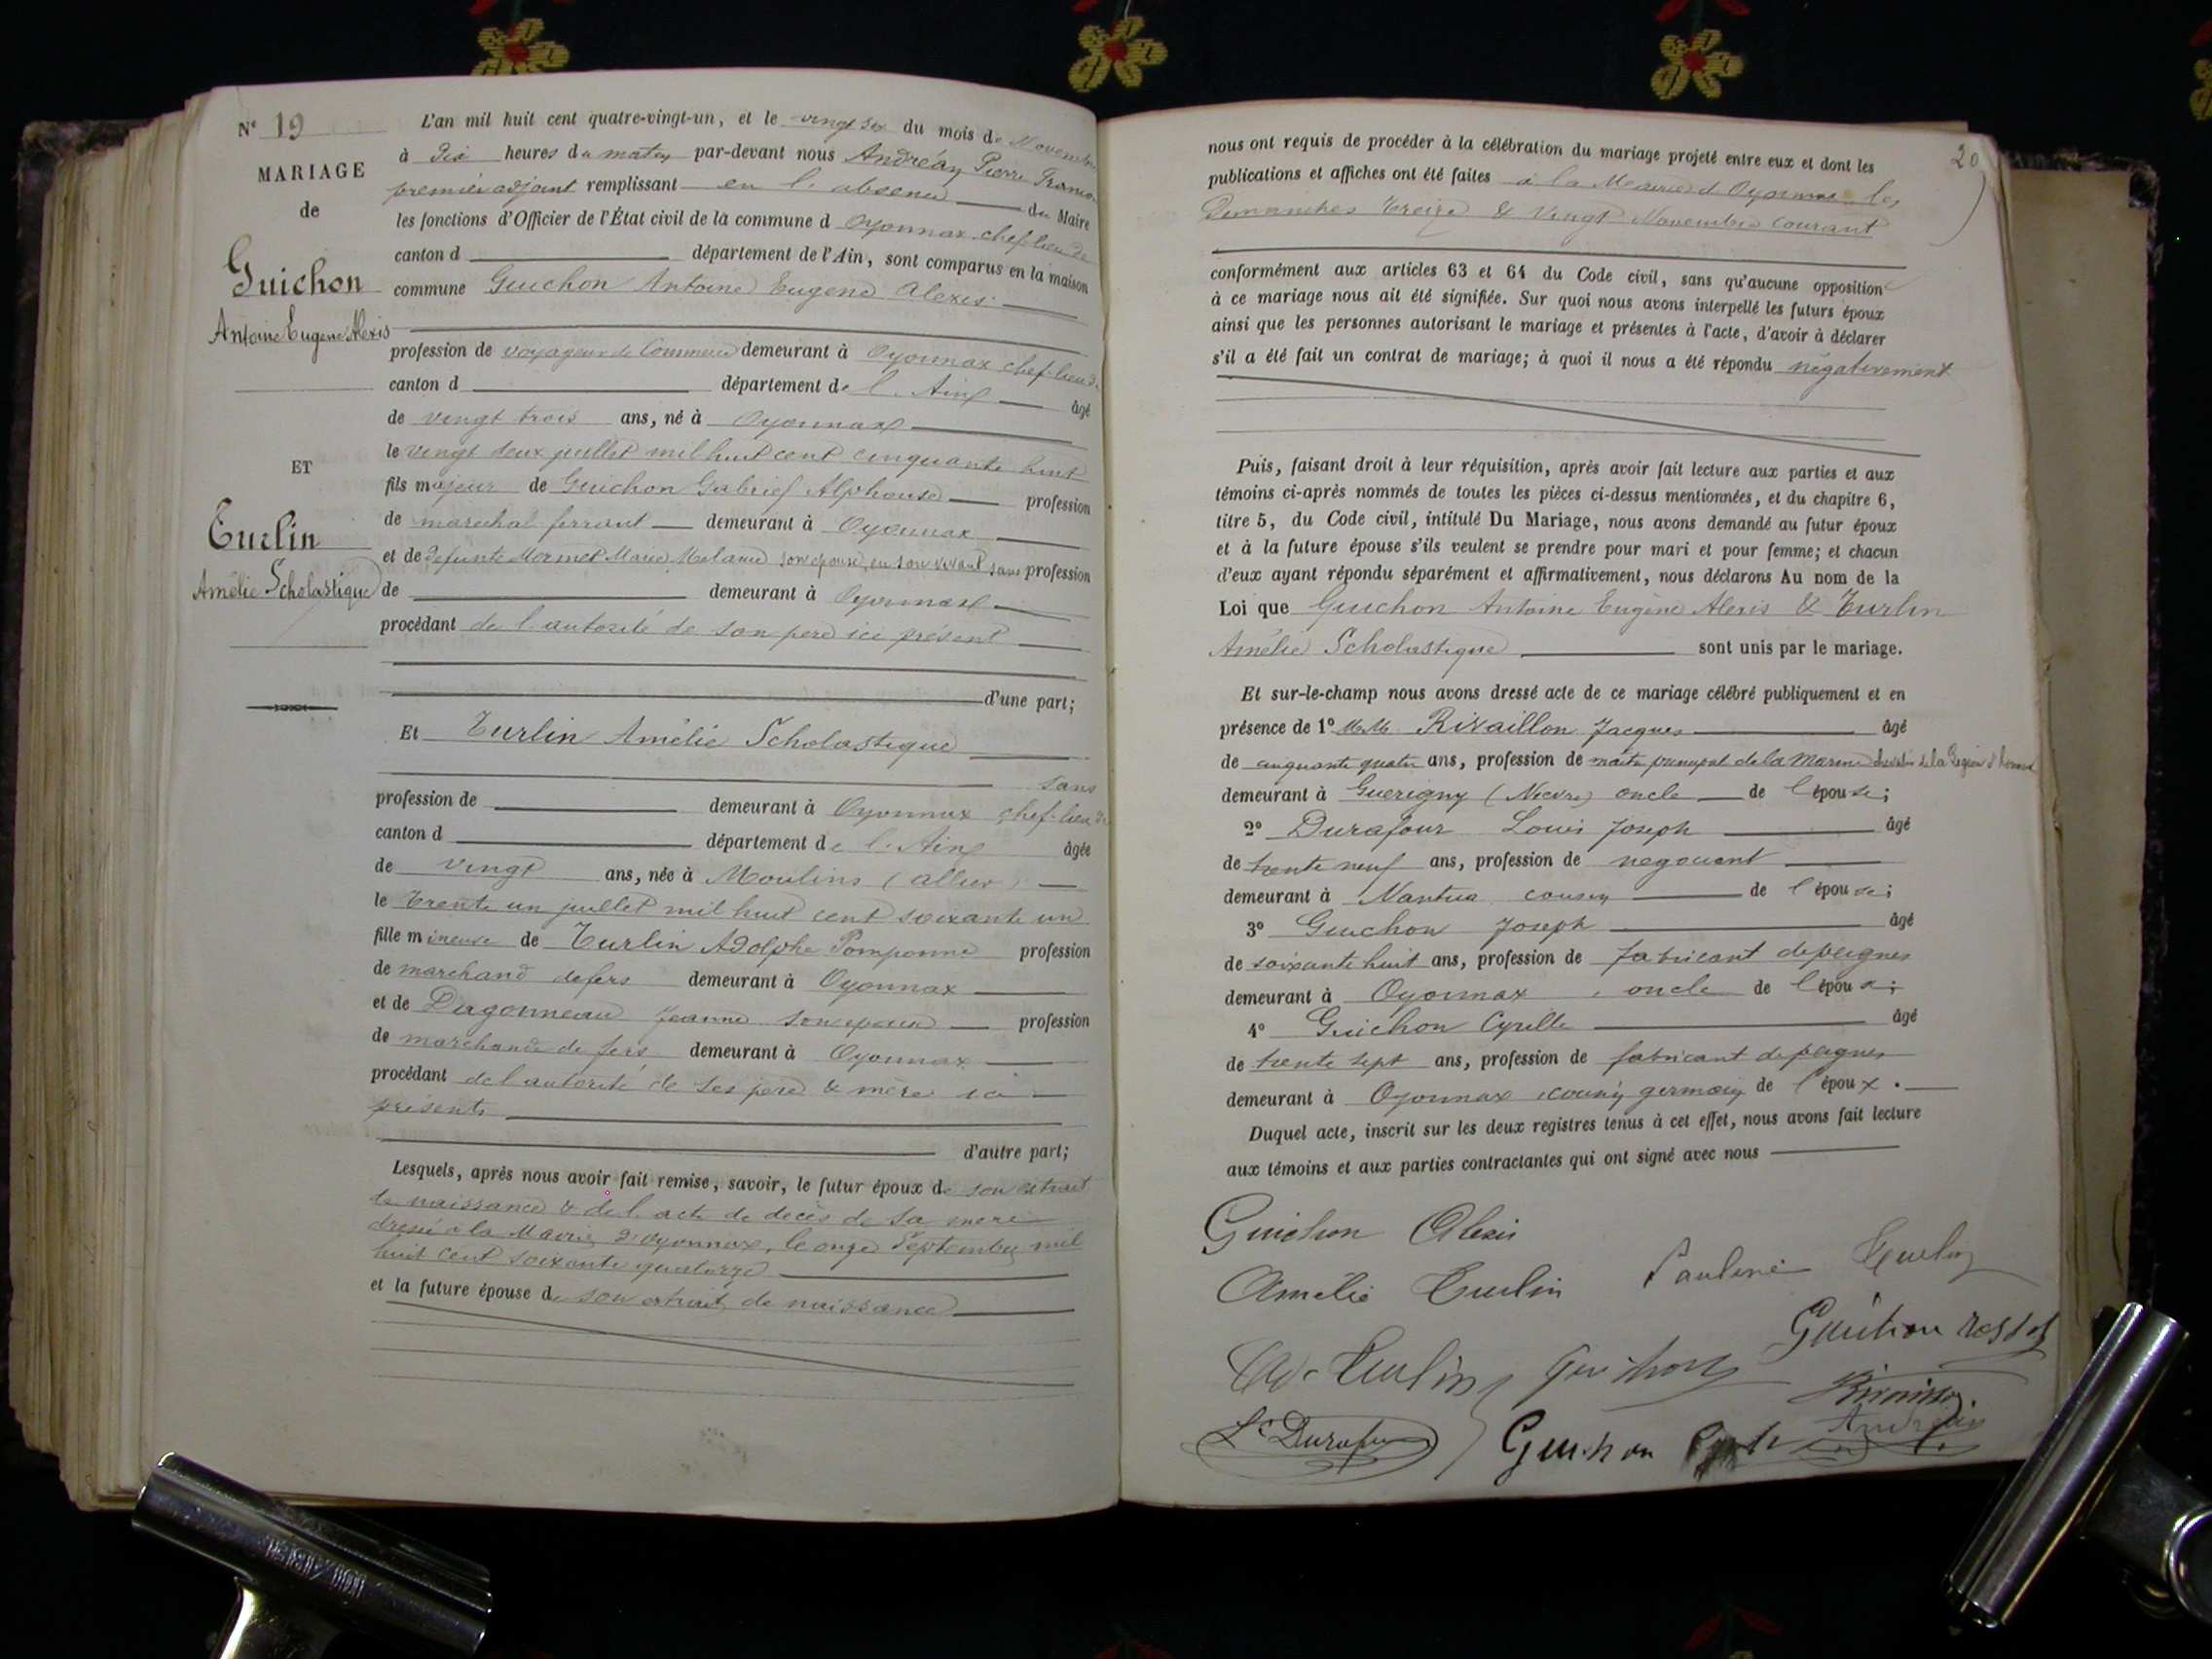 N° 19
MARIAGE
de
Guichon
Antoine Eugène Alexis
ET
Turlin
Amélie Scholastique
L'an mil huit cent quatre-vingt-un, et le vingt six du mois de Novembre
à dix heures du matin par-devant nous Andréan Pierre
premier adjoint remplissant en l'absence du Maire
les fonctions d'Officier de l'État civil de la commune d Oyonnax chef-lieu de
canton d département de l'Ain, sont comparus en la maison
commune Guichon Antoine Eugène Alexis
profession de voyageur de Commerce demeurant à Oyonnax chef-lieu de
canton d département de l'Ain âgé
de vingt trois ans, né à Oyonnax
le vingt deux juillet mil huit cent cinquante huit
fils majeur de Guichon Gabriel Alphonse profession
de maréchal ferrant demeurant à Oyonnax
et de defunte Mermet Marie Melanie son épouse, en son vivant sans profession
de demeurant à Oyonnax
procédant de l'autorité de son père ici présent
d'une part;
Et Turlin Amélie Scholastique
sans
profession de demeurant à Oyonnax chef-lieu de
canton d département de l'Ain âgée
de vingt ans, née à Moulins (allier)
le trente un juillet mil huit cent soixante un
fille mineure de Turlin Adolphe Pomponne profession
de marchand de fers demeurant à Oyonnax
et de Dagonneau Jeanne son épouse profession
de marchande de fers demeurant à Oyonnax
procédant de l'autorité de ses père & mère ici
présents
d'autre part;
Lesquels, après nous avoir fait remise, savoir, le futur époux de son extrait
de naissance & de l'acte de décès de sa mère
dressé à la Mairie d'oyonnax, le onze Septembre mil
huit cent soixante quatorze
et la future épouse de son extrait de naissance
20
nous ont requis de procéder à la célébration du mariage projeté entre eux et dont les
publications et affiches ont été faites à la Mairie d'Oyonnax les
Dimanches treize & vingt Novembre courant
conformément aux articles 63 et 64 du Code civil, sans qu'aucune opposition
à ce mariage nous ait été signifiée. Sur quoi nous avons interpellé les futurs époux
ainsi que les personnes autorisant le mariage et présentes à l'acte, d'avoir à déclarer
s'il a été fait un contrat de mariage; à quoi il nous a été répondu négativement
Puis, faisant droit à leur réquisition, après avoir fait lecture aux parties et aux
témoins ci-après nommés de toutes les pièces ci-dessus mentionnées, et du chapitre 6,
titre 5, du Code civil, intitulé Du Mariage, nous avons demandé au futur époux
et à la future épouse s'ils veulent se prendre pour mari et pour femme; et chacun
d'eux ayant répondu séparément et affirmativement, nous déclarons Au nom de la
Loi que Guichon Antoine Eugène Alexis & Turlin
Amélie Scholastique sont unis par le mariage.
Et sur-le-champ nous avons dressé acte de ce mariage célébré publiquement et en
présence de 1° MM. Rivaillon Jacques âgé
de cinquante quatre ans, profession de maître principal de la Marine chevalier de la Légion d'honneur
demeurant à Guerigny (Nièvre) oncle de l'épouse;
2° Durafour Louis Joseph âgé
de trente neuf ans, profession de négociant
demeurant à Nantua cousin de l'épouse;
3° Guichon Joseph âgé
de soixante huit ans, profession de fabricant de peignes
demeurant à Oyonnax, oncle de l'époux;
4° Guichon Cyrille âgé
de trente sept ans, profession de fabricant de peignes
demeurant à Oyonnax, cousin germain de l'époux.
Duquel acte, inscrit sur les deux registres tenus à cet effet, nous avons fait lecture
aux témoins et aux parties contractantes qui ont signé avec nous
Guichon Alexis
Amélie Turlin Pauline Turlin
Ad. Turlin Guichon Guichon
Ls Durafour Guichon Andréan